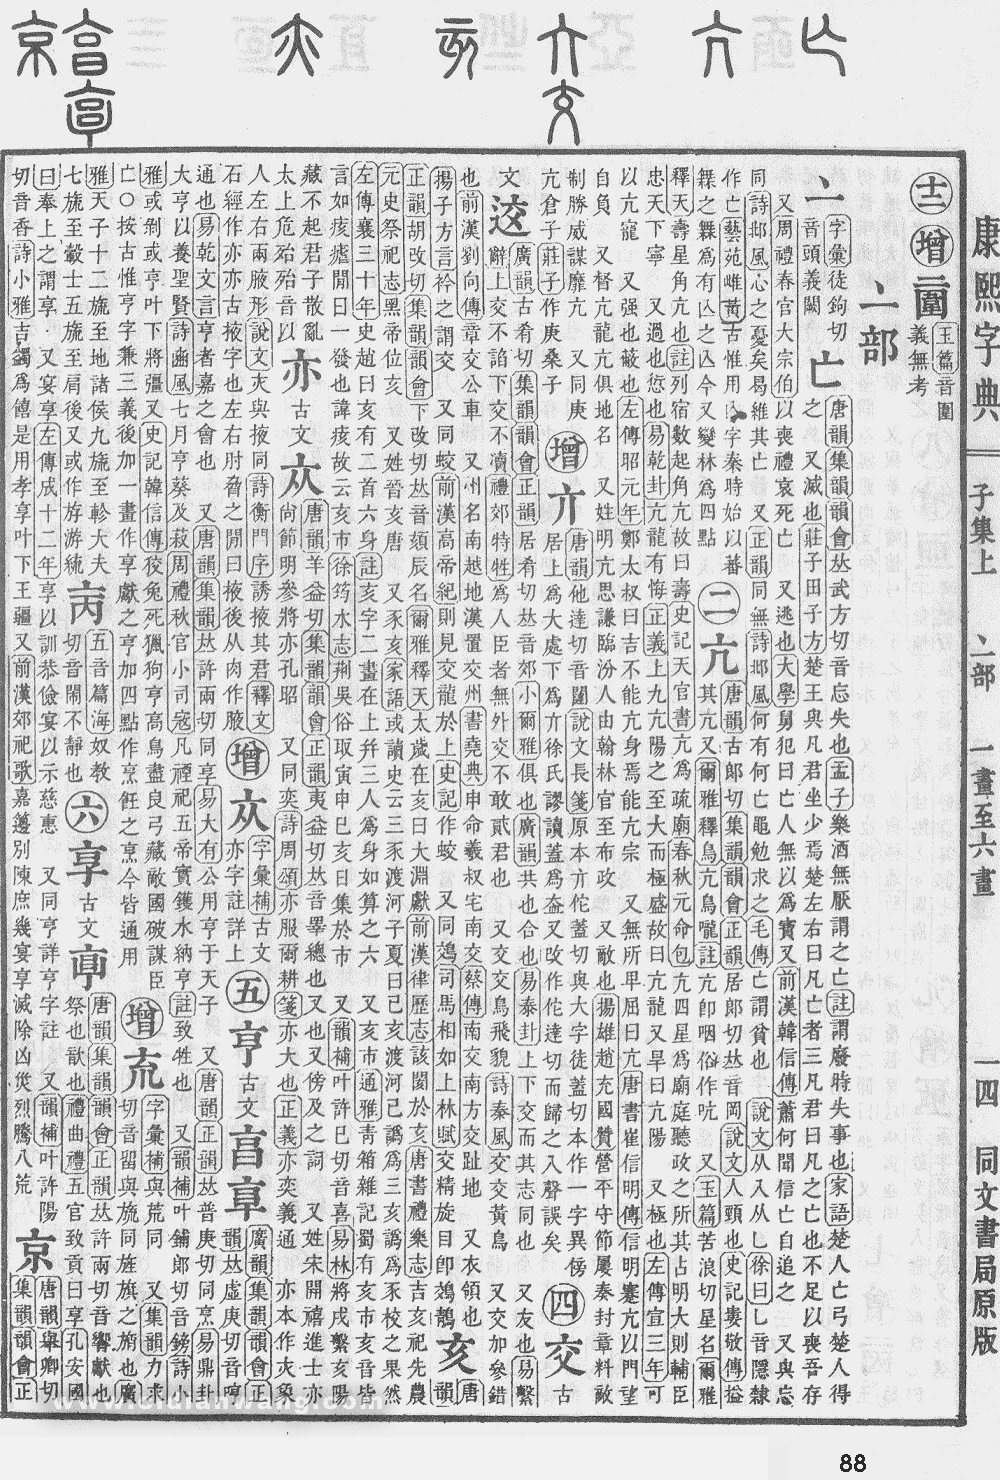 康熙字典 子集上 亠部 一畫至六畫 一四 同文書局原版
十二 增 玉篇音圍
義無考
亠部
亠 字彙徒鉤切
音頭義闕
亡 唐韻集韻韻會𠀤武方切音忘失也孟子樂酒無厭謂之亡註謂廢時失事也家語楚人亡弓楚人得
之 又滅也莊子田子方楚王與凡君坐少焉楚左右曰凡亡者三凡君曰凡之亡也不足以喪吾存
又周禮春官大宗伯以喪禮哀死亡 又逃也大學舅犯曰亡人無以為寶又前漢韓信傳蕭何聞信亡自追之 又與忘
同詩邶風心之憂矣曷維其亡 又正韻同無詩邶風何有何亡黽勉求之毛傳亡謂貧也 說文从入从乚徐曰乚音隱隸
作亡藝苑雌黃古惟用兦字秦時始以蕃
橆之橆為有兦之兦今又變林為四點
二 亢 唐韻古郎切集韻韻會正韻居郎切𠀤音岡說文人頸也史記婁敬傳搤
其亢 又爾雅釋鳥亢鳥嚨註亢卽咽俗作吭 又玉篇苦浪切星名爾雅
釋天壽星角亢也註列宿數起角亢故曰壽史記天官書亢為疏廟春秋元命包亢四星為廟庭聽政之所其占明大則輔臣
忠天下寧 又過也愆也易乾卦亢龍有悔正義上九亢陽之至大而極盛故曰亢龍 又旱曰亢陽 又極也左傳宣三年可
以亢寵 又强也蔽也左傳昭元年鄭大叔曰吉不能亢身焉能亢宗 又無所卑屈曰亢唐書崔信明傳信明蹇亢以門望
自負 又督亢龍亢俱地名 又姓明亢思謙臨汾人由翰林官至布政 又敵也揚雄趙充國贊營平守節屢奏封章料敵
制勝威謀靡亢 又同庚
亢倉子莊子作庚桑子
增 亣 唐韻他達切音闥說文長箋原本亣佗蓋切與大字徒蓋切本作一字異傍
居上為大處下為亣徐氏謬讀蓋為盍又改作佗達切而歸之入聲誤矣
四 交 古
文䢒 廣韻古肴切集韻韻會正韻居肴切𠀤音郊小爾雅俱也廣韻共也合也易泰卦上下交而其志同也 又友也易繫
辭上交不諂下交不瀆禮郊特牲為人臣者無外交不敢貳君也 又交交鳥飛貌詩秦風交交黃鳥 又交加參錯
也前漢劉向傳章交公車 又州名南越地漢置交州書堯典申命羲叔宅南交蔡傳南交南方交趾地 又衣領也
揚子方言衿之謂交 又同蛟前漢高帝紀則見交龍於上史記作蛟 又同鵁司馬相如上林賦交精旋目卽鵁鶄 亥 唐韻
正韻胡改切集韻韻會下改切𠀤音頦辰名爾雅釋天太歲在亥曰大淵獻前漢律歷志該閡於亥唐書禮樂志吉亥祀先農
元史祭祀志黑帝位亥 又姓晉亥唐 又豕亥家語或讀史云三豕渡河子夏曰己亥渡河己譌為三亥譌為豕校之果然
左傳襄三十年史趙曰亥有二首六身註亥字二畫在上幷三人為身如算之六 又亥市通雅靑箱雜記蜀有亥市亥音皆
言如痎瘧閒日一發也諱痎故云亥市徐筠水志荆吳俗取寅申巳亥日集於市 又韻補叶許巳切音喜易林將戌繫亥陽
藏不起君子散亂
太上危殆殆音以
亦 古文 唐韻羊益切集韻韻會正韻夷益切𠀤音睪總也又也又傍及之詞 又姓宋開禧進士亦
尚節明參將亦孔昭 又同奕詩周頌亦服爾耕箋亦大也正義亦奕義通 亦本作夾
人左右兩腋形說文夾與掖同詩衡門序誘掖其君釋文
石經作亦亦古掖字也左右肘脅之閒曰掖後从肉作腋
增 字彙補古文
亦字註詳上
五 亨 古文亯 廣韻集韻韻會正
韻𠀤虛庚切音哼
通也易乾文言亨者嘉之會也 又唐韻集韻𠀤許兩切同享易大有公用亨于天子 又唐韻正韻𠀤普庚切同烹易鼎卦
大亨以養聖賢詩豳風七月亨葵及菽周禮秋官小司寇凡禋祀五帝實鑊水納亨註致牲也 又韻補叶鋪郎切音鎊詩小
雅或剝或亨叶下將疆又史記韓信傳狡兔死獵狗亨高鳥盡良弓藏敵國破謀臣
亡○按古惟亨字兼三義後加一畫作享獻之享加四點作烹飪之烹今皆通用
增 㐬 字彙補與荒同 又集韻力求
切音留與旒同旌旗之旒也廣
雅天子十二旒至地諸侯九旒至軫大夫
七旒至轂士五旒至肩後又或作斿游統
五音篇海奴教
切音鬧不靜也
六 享 古文 唐韻集韻韻會正韻𠀤許兩切音響獻也
祭也歆也禮曲禮五官致貢曰享孔安國
曰奉上之謂享 又宴享左傳成十二年享以訓恭儉宴以示慈惠 又同亨詳亨字註 又韻補叶許陽
切音香詩小雅吉蠲為饎是用孝享叶下王疆又前漢郊祀歌嘉籩別陳庶幾宴享滅除凶烖烈騰八荒
京 唐韻舉卿切
集韻韻會正
88